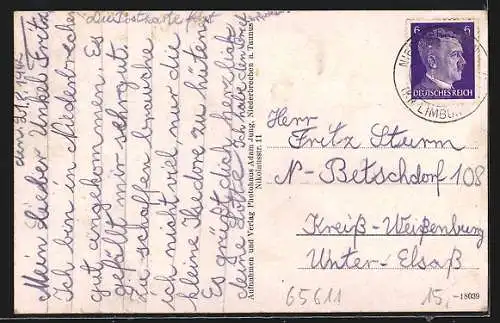 den 31.8.1942
Mein Lieber Onkel Fritz
Ich bin in Niederbrechen
gut angekommen. Es
gefällt mir sehr gut.
Zu schaffen brauche
ich nicht viel, nur die
kleine Theodore zu hüten
Es grüßt dich herzlich
deine Lotte Ich habe den Brief
Die Postkarte
Aufnahmen und Verlag Photohaus Adam Jung, Niederbrechen a. Taunus
Nikolausstr. 11
6 6
DEUTSCHES REICH
LIMBU
Herr
Fritz Sturm
N-Betschdorf 108
Kreiß-Weißenburg
Unter-Elsaß
65611
15,-
-18039